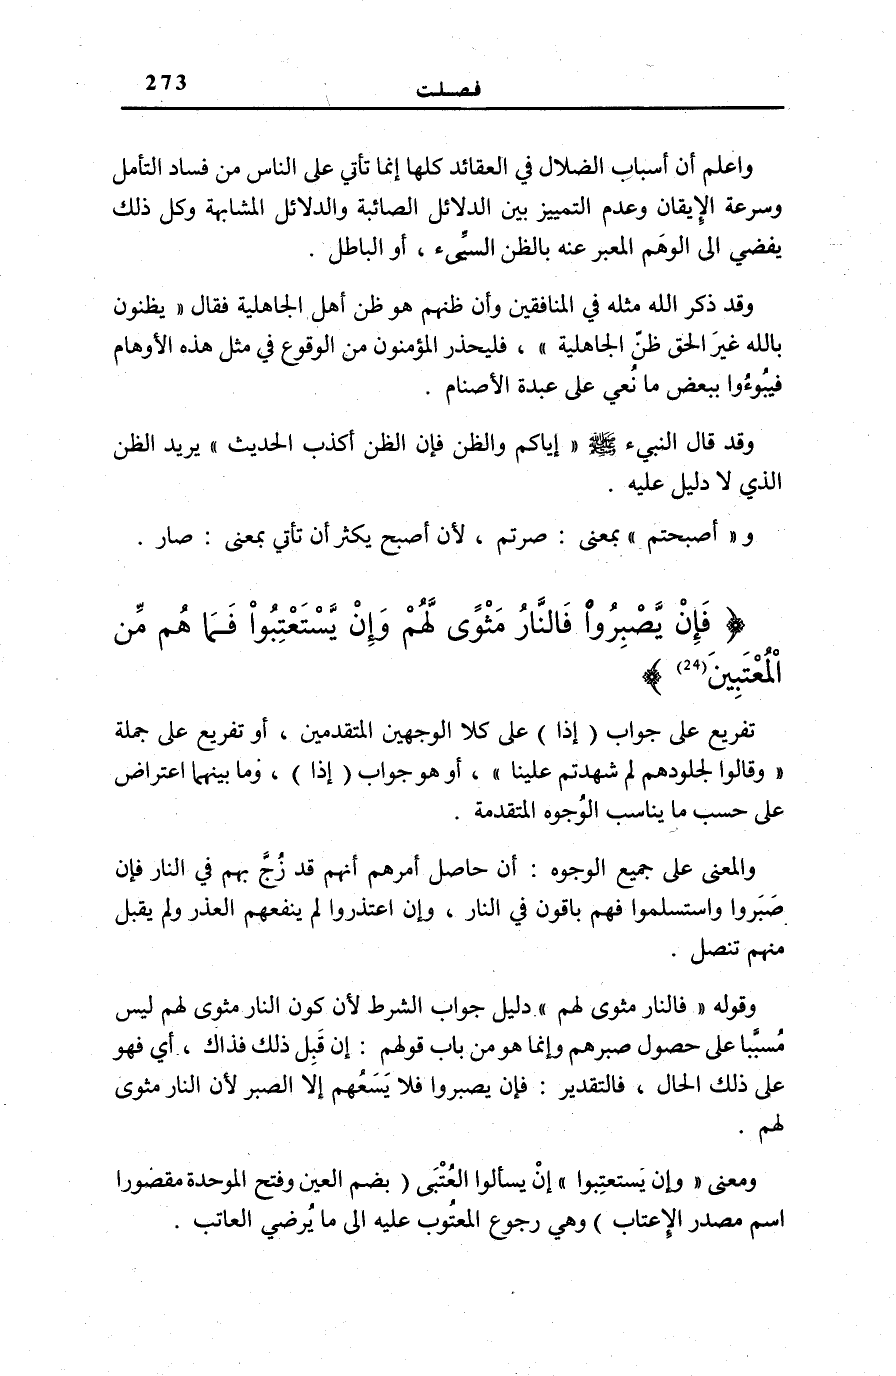 فصلت 273
واعلم أن أسباب الضلال في العقائد كلها إنما تأتي على الناس من فساد التأمل
وسرعة الإيقان وعدم التمييز بين الدلائل الصائبة والدلائل المشابهة وكل ذلك
يفضي الى الوهَم المعبر عنه بالظن السيِّىء ، أو الباطل .
وقد ذكر الله مثله في المنافقين وأن ظنهم هو ظن أهل الجاهلية فقال « يظنون
بالله غيرَ الحق ظنّ الجاهلية » ، فليحذر المؤمنون من الوقوع في مثل هذه الأوهام
فيبُوءُوا ببعض ما نُعي على عبدة الأصنام .
وقد قال النبيء ﷺ « إياكم والظن فإن الظن أكذب الحديث » يريد الظن
الذي لا دليل عليه .
و « أصبحتم » بمعنى : صرتم ، لأن أصبح يكثر أن تأتي بمعنى : صار .
﴿ فَإِنْ يَّصْبِرُواْ فَالنَّارُ مَثْوًى لَّهُمْ وَإِنْ يَّسْتَعْتِبُواْ فَمَا هُم مِّن
الْمُعْتَبِينَ (24) ﴾
تفريع على جواب ( إذا ) على كلا الوجهين المتقدمين ، أو تفريع على جملة
« وقالوا لجلودهم لم شهدتم علينا » ، أو هو جواب ( إذا ) ، وما بينهما اعتراض
على حسب ما يناسب الوُجوه المتقدمة .
والمعنى على جميع الوجوه : أن حاصل أمرهم أنهم قد زُجَّ بهم في النار فإن
صَبَروا واستسلموا فهم باقون في النار ، وإن اعتذروا لم ينفعهم العذر ولم يقبل
منهم تنصل .
وقوله « فالنار مثوى لهم » دليل جواب الشرط لأن كون النار مثوى لهم ليس
مُسبَّبا على حصول صبرهم وإنما هو من باب قولهم : إن قَبِل ذلك فذاك ، أي فهو
على ذلك الحال ، فالتقدير : فإن يصبروا فلا يَسَعُهم إلا الصبر لأن النار مثوى
لهم .
ومعنى « وإن يَستعتِبوا » إنْ يسألوا العُتْبَى ( بضم العين وفتح الموحدة مقصورا
اسم مصدر الإعتاب ) وهي رجوع المعتُوب عليه الى ما يُرضي العاتب .